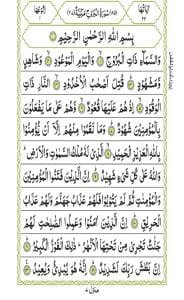 اٰيَاتُهَا ۲۲ (۸۵) سُوْرَةُ الْبُرُوْجِ مَكِّيَّةٌ (۲۷) رُكُوْعُهَا ۱
بِسْمِ اللّٰهِ الرَّحْمٰنِ الرَّحِيْمِ
وَالسَّمَآءِ ذَاتِ الْبُرُوْجِ ۝ وَالْيَوْمِ الْمَوْعُوْدِ ۝ وَشَاهِدٍ
وَّمَشْهُوْدٍ ۝ قُتِلَ اَصْحٰبُ الْاُخْدُوْدِ ۝ النَّارِ ذَاتِ
الْوَقُوْدِ ۝ اِذْ هُمْ عَلَيْهَا قُعُوْدٌ ۝ وَّهُمْ عَلٰى مَا يَفْعَلُوْنَ
بِالْمُؤْمِنِيْنَ شُهُوْدٌ ۝ وَمَا نَقَمُوْا مِنْهُمْ اِلَّاۤ اَنْ يُّؤْمِنُوْا
بِاللّٰهِ الْعَزِيْزِ الْحَمِيْدِ ۝ الَّذِيْ لَهٗ مُلْكُ السَّمٰوٰتِ وَالْاَرْضِ
وَاللّٰهُ عَلٰى كُلِّ شَيْءٍ شَهِيْدٌ ۝ اِنَّ الَّذِيْنَ فَتَنُوا الْمُؤْمِنِيْنَ
وَالْمُؤْمِنٰتِ ثُمَّ لَمْ يَتُوْبُوْا فَلَهُمْ عَذَابُ جَهَنَّمَ وَلَهُمْ عَذَابُ
الْحَرِيْقِ ۝ اِنَّ الَّذِيْنَ اٰمَنُوْا وَعَمِلُوا الصّٰلِحٰتِ لَهُمْ
جَنّٰتٌ تَجْرِيْ مِنْ تَحْتِهَا الْاَنْهٰرُ ذٰلِكَ الْفَوْزُ الْكَبِيْرُ ۝
اِنَّ بَطْشَ رَبِّكَ لَشَدِيْدٌ ۝ اِنَّهٗ هُوَ يُبْدِئُ وَيُعِيْدُ ۝
منزل ۷